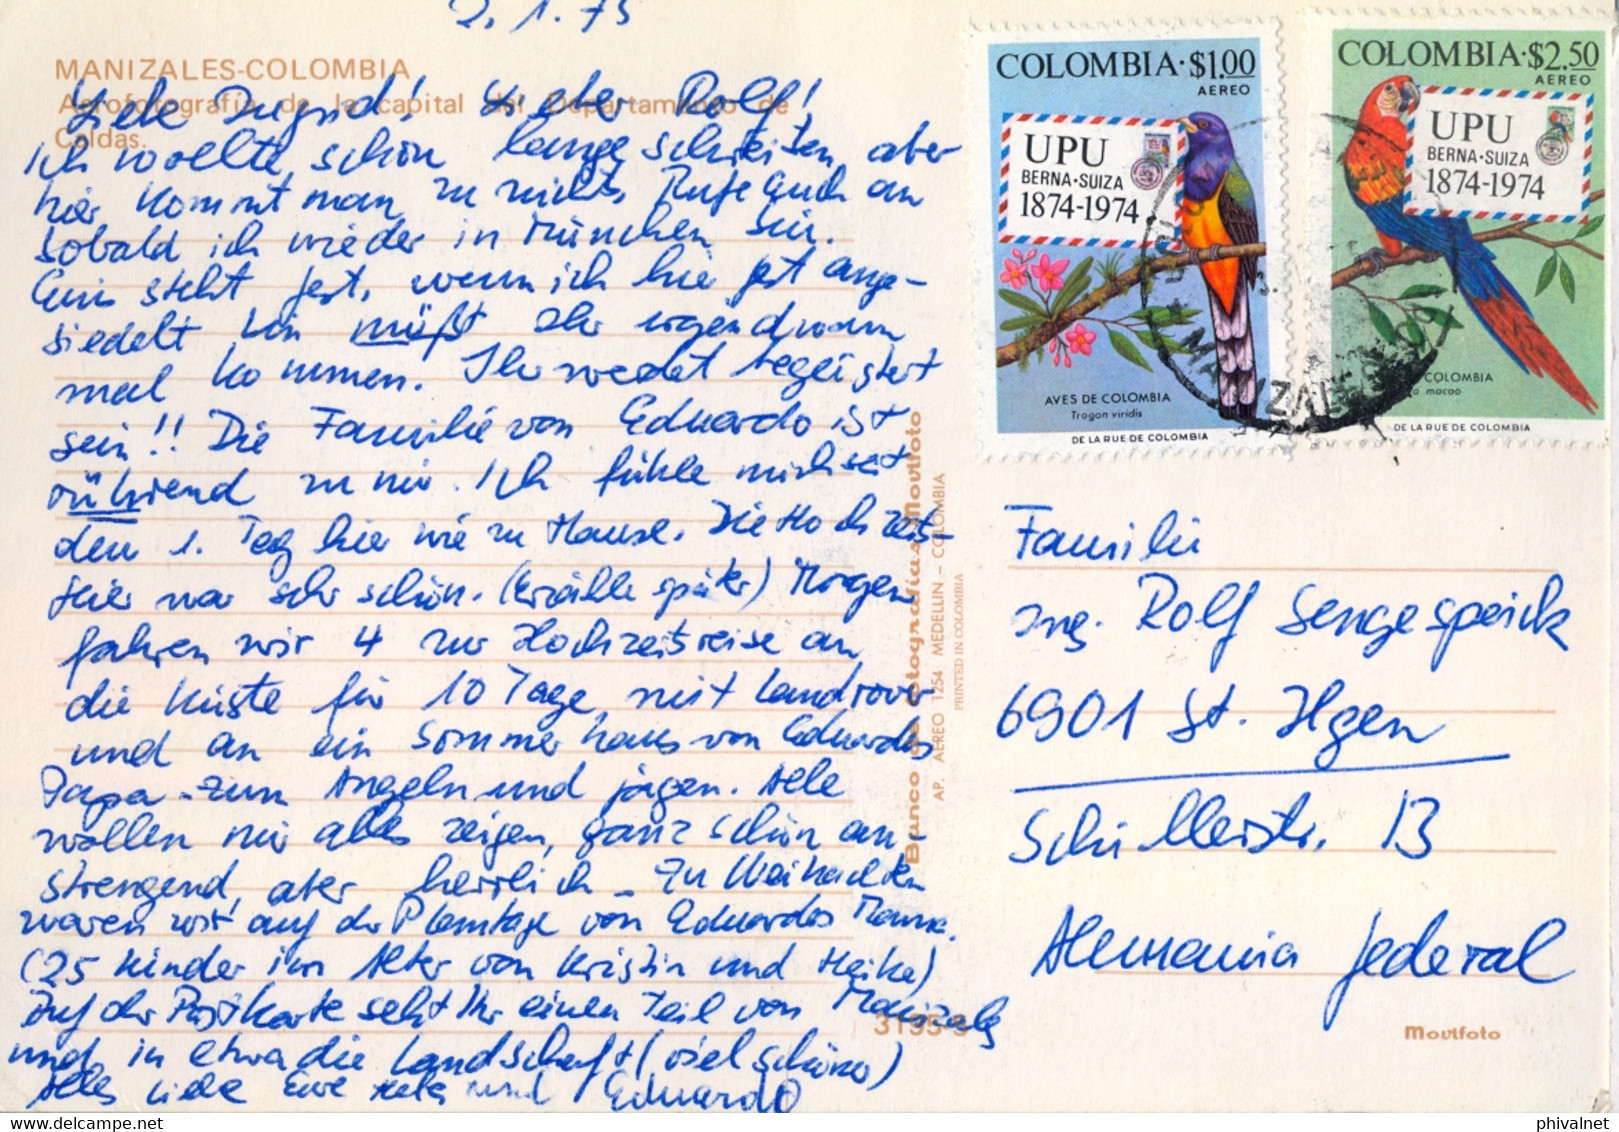 2.1.75
MANIZALES-COLOMBIA
Aerofotografía de la capital del Departamento de
Caldas.
Liebe Ingrid! Lieber Rolf!
Ich wollte schon lange schreiben, aber
hier kommt man zu nichts. Rufe Euch an
sobald ich wieder in München bin.
Eins steht fest, wenn ich hier fest ange-
siedelt bin müßt Ihr irgendwann
mal kommen. Ihr werdet begeistert
sein!! Die Familie von Eduardo ist
rührend zu mir. Ich fühle mich seit
dem 1. Tag hier wie zu Hause. Die Hochzeit
hier war sehr schön. (erzähle später) Morgen
fahren wir 4 zur Hochzeitsreise an
die Küste für 10 Tage mit Landrover
und an ein Sommerhaus von Eduardos
Papa - zum Angeln und jagen. Alle
wollen mir alles zeigen, ganz schön an-
strengend, aber herrlich - Zu Weihnachten
waren wir auf der Plantage von Eduardos Mama.
(25 Kinder im Alter von Kristin und Heike)
Auf der Postkarte seht Ihr einen Teil von Manizales
und in etwa die Landschaft (viel schöner)
Alles Liebe Eure und Eduardo
Banco de Fotografías Movifoto
AP. AEREO 1254 MEDELLIN - COLOMBIA
PRINTED IN COLOMBIA
3195-S
COLOMBIA·$1.00
AEREO
UPU
BERNA·SUIZA
1874-1974
AVES DE COLOMBIA
Trogon viridis
DE LA RUE DE COLOMBIA
COLOMBIA·$2.50
AEREO
UPU
BERNA·SUIZA
1874-1974
COLOMBIA
macao
DE LA RUE DE COLOMBIA
Familie
Ing. Rolf Sengespeick
6901 St. Ilgen
Schillerstr. 13
Alemania federal
Movifoto
phivalnet